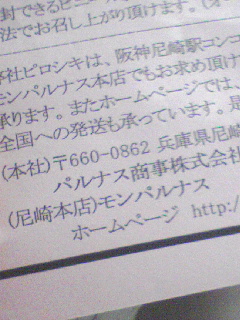 封できるビニー
法でお召し上がり頂けます。(オ
弊社ピロシキは、阪神尼崎駅コンコ
モンパルナス本店でもお求め頂け
承ります。またホームページでは、
全国への発送も承っています。是
(本社)〒660-0862 兵庫県尼崎
パルナス商事株式会社
(尼崎本店)モンパルナス
ホームページ http:/